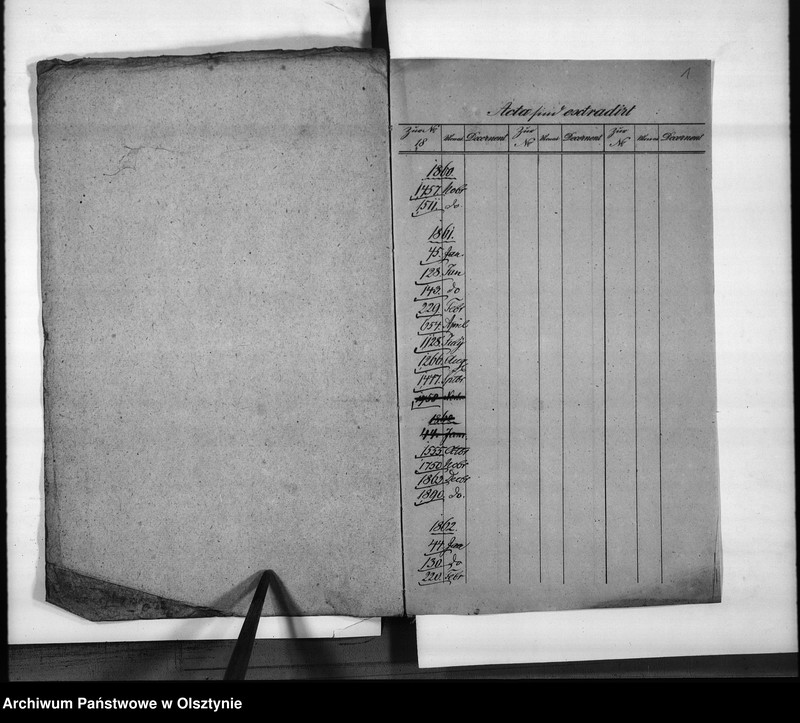 1
Acta sind extradirt
Zur № Monat Decernent Zur № Monat Decernent Zur № Monat Decernent
18
1860.
1457. Novbr
1511. do
1861.
45. Jan.
128. Jan
143. do
229. Febr
654. April
1128. July
1266. Aug.
1477. Sptbr
1555. Octbr
1750. Novbr
1863. Decbr
1896. do.
1862.
44. Jan
130. do
220. Febr
Archiwum Państwowe w Olsztynie